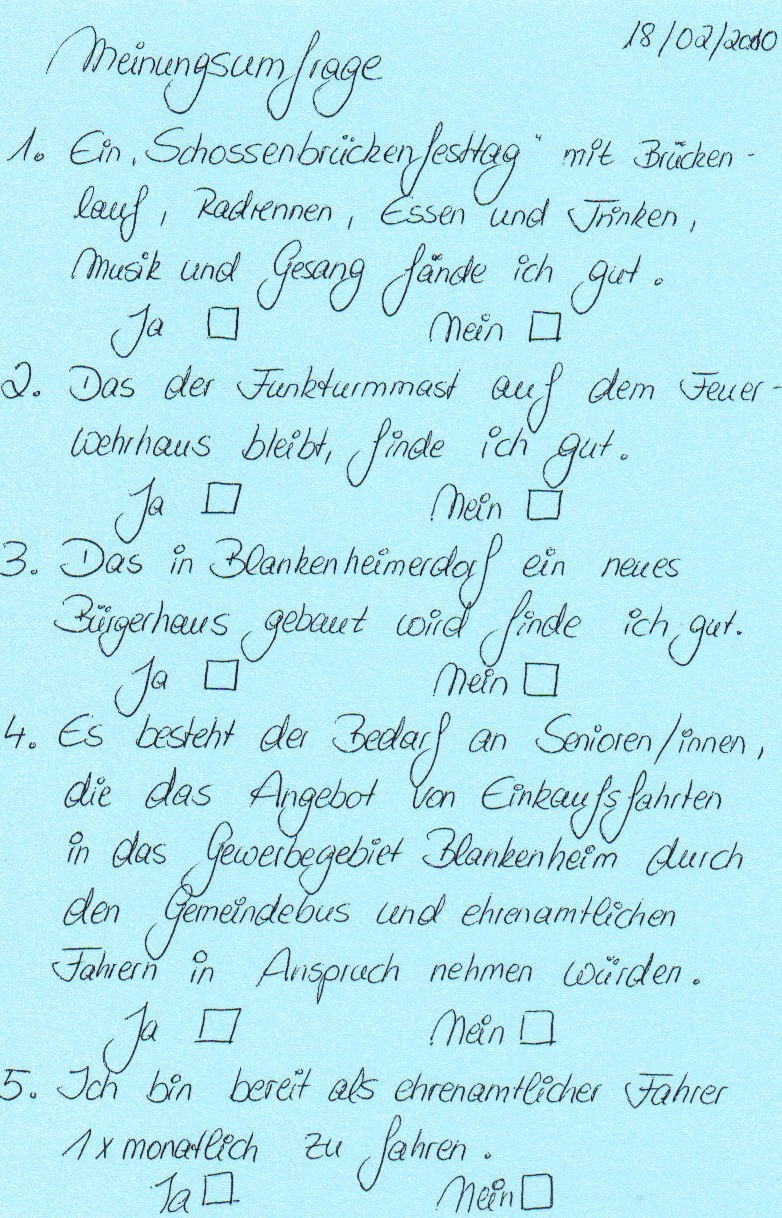 18/02/2010
Meinungsumfrage
1. Ein „Schossenbrückenfesttag“ mit Brücken-
lauf, Radrennen, Essen und Trinken,
Musik und Gesang fände ich gut.
Ja □ Nein □
2. Das der Funkturmmast auf dem Feuer-
wehrhaus bleibt, finde ich gut.
Ja □ Nein □
3. Das in Blankenheimerdorf ein neues
Bürgerhaus gebaut wird finde ich gut.
Ja □ Nein □
4. Es besteht der Bedarf an Senioren/innen,
die das Angebot von Einkaufsfahrten
in das Gewerbegebiet Blankenheim durch
den Gemeindebus und ehrenamtlichen
Fahrern in Anspruch nehmen würden.
Ja □ Nein □
5. Ich bin bereit als ehrenamtlicher Fahrer
1x monatlich zu fahren.
Ja □ Nein □